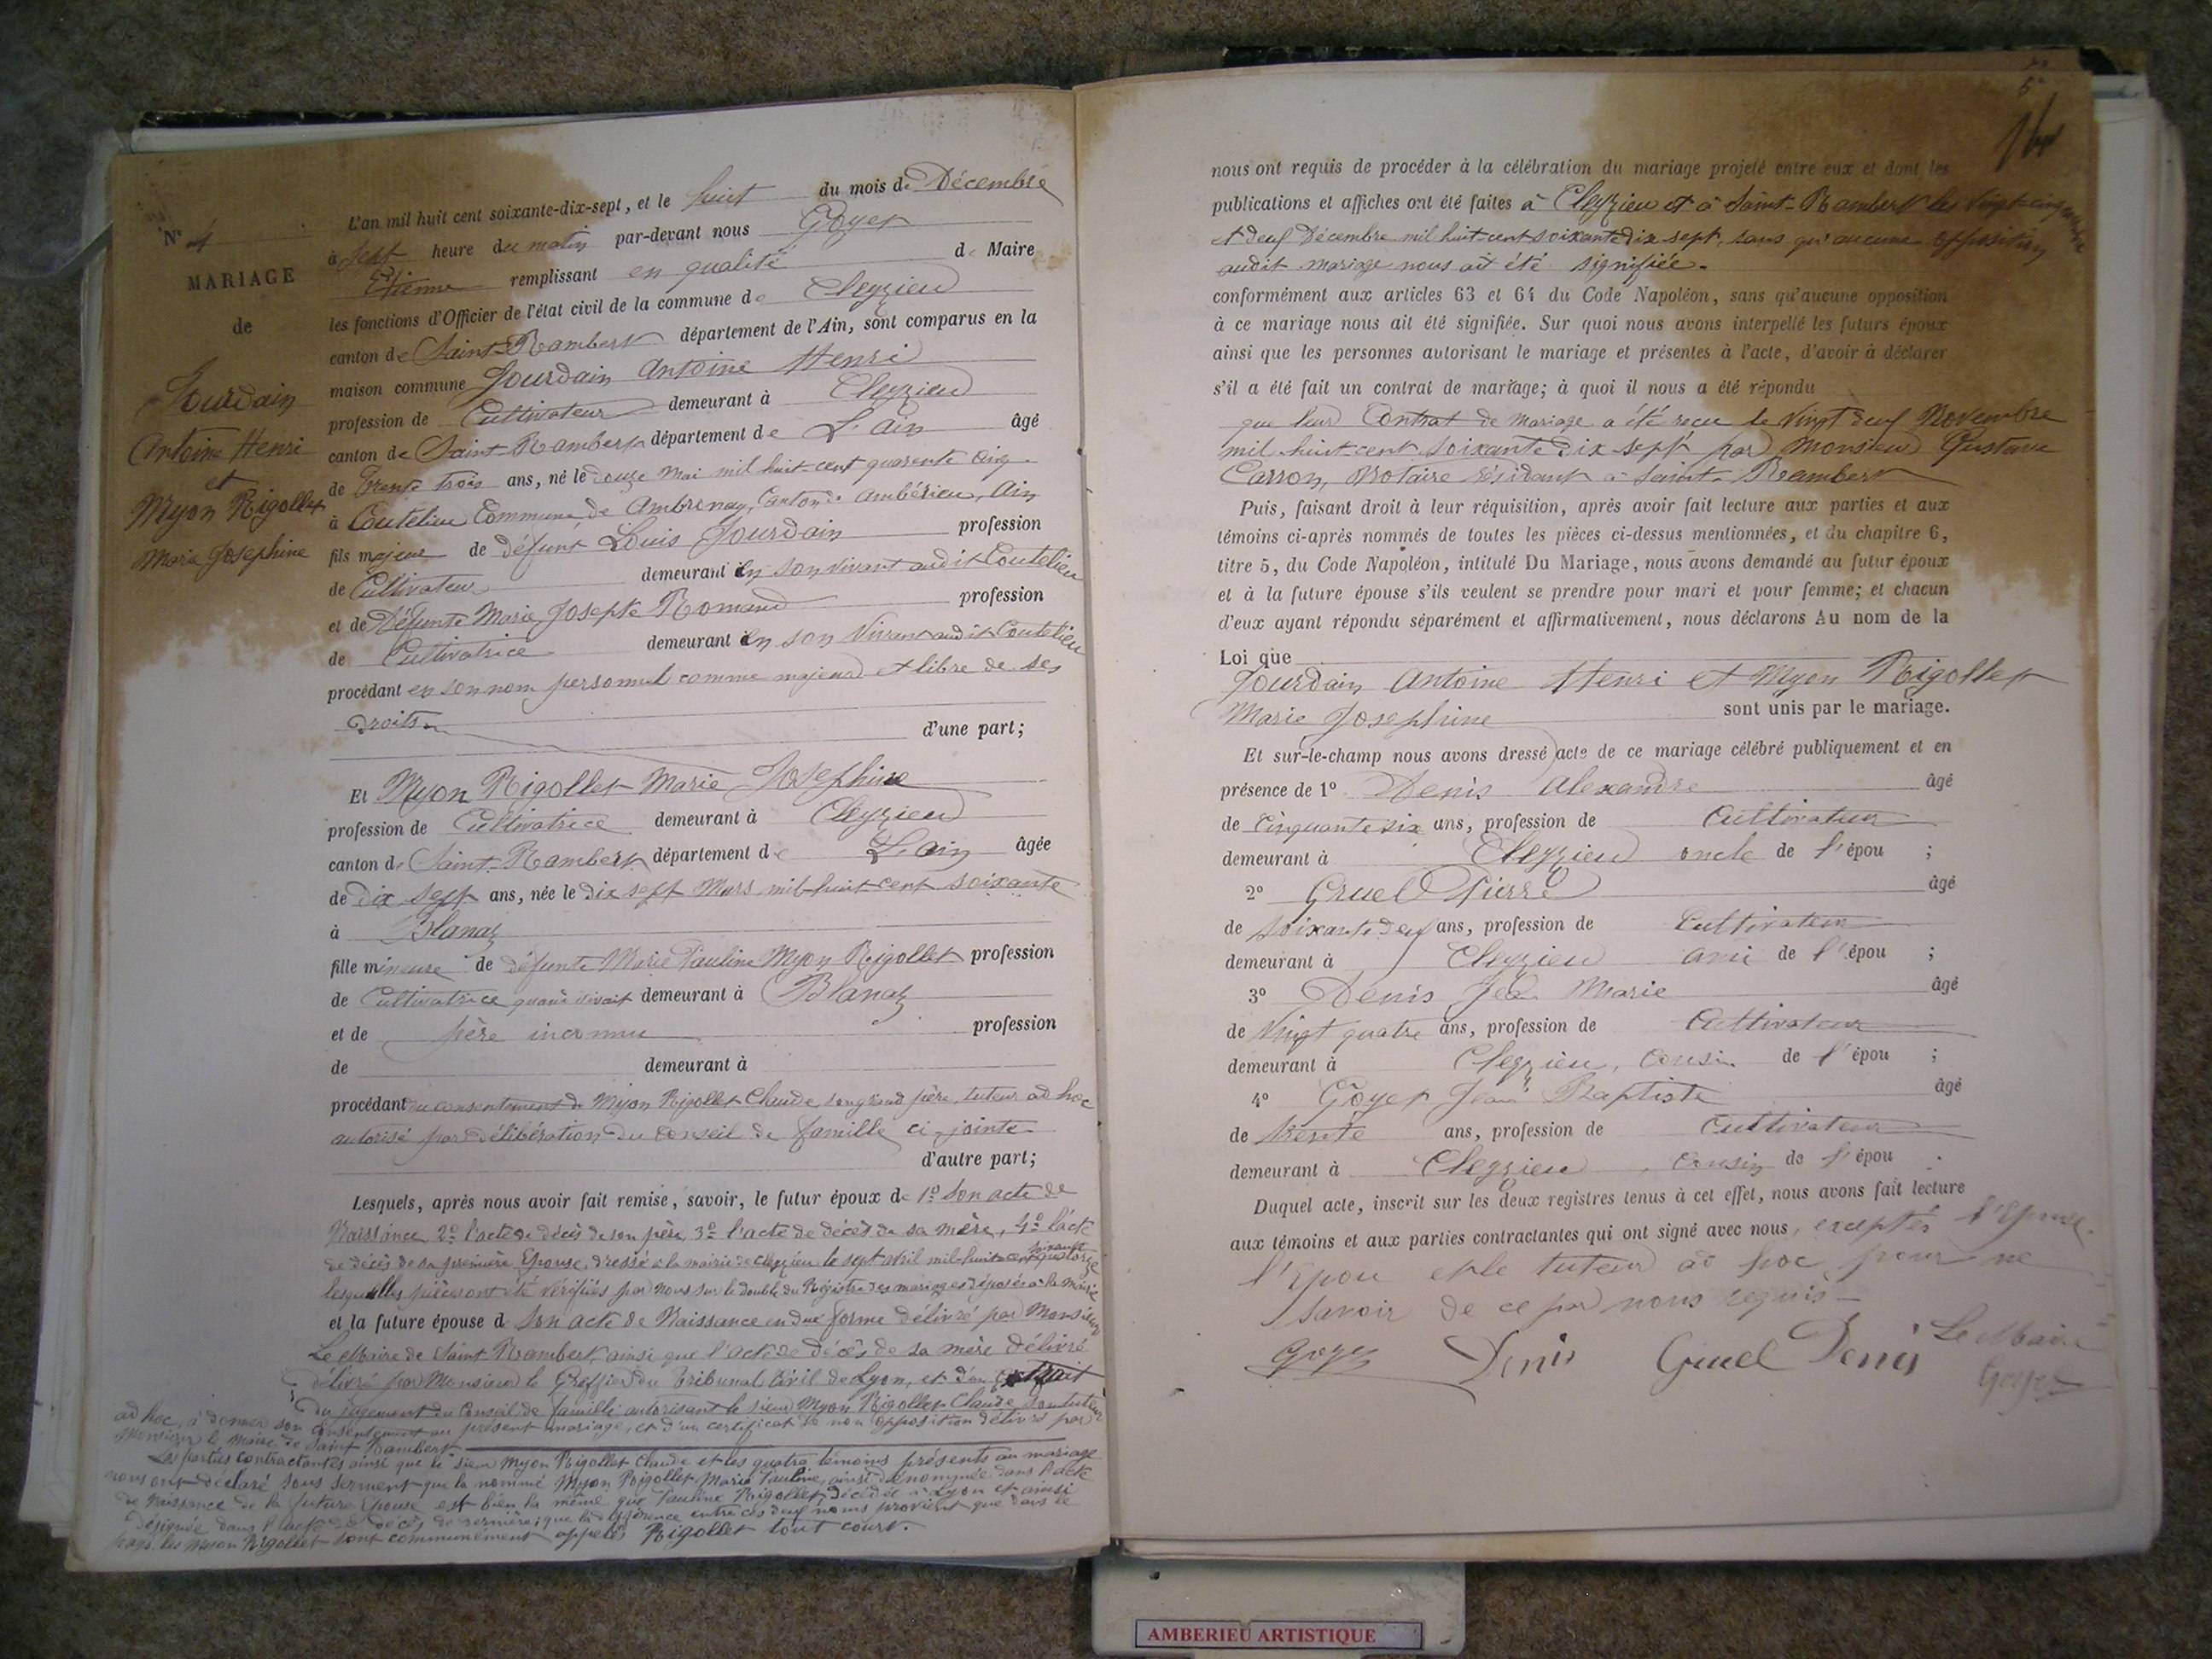 N° 4
MARIAGE
de
Jourdain
Antoine Henri
et
Myon Rigollet
Marie Josephine
L'an mil huit cent soixante-dix-sept, et le huit du mois de Décembre
à sept heure du matin par-devant nous Goyet
Etienne remplissant en qualité de Maire
les fonctions d'Officier de l'état civil de la commune de Cleyzieu
canton de Saint-Rambert département de l'Ain, sont comparus en la
maison commune Jourdain Antoine Henri
profession de Cultivateur demeurant à Cleyzieu
canton de Saint-Rambert département de L'ain âgé
de trente trois ans, né le douze mai mil huit-cent quarente cinq
à Coutelieu Commune de Ambronay, Canton de Ambérieu, Ain
fils majeur de défunt Louis Jourdain profession
de Cultivateur demeurant en son vivant audit Coutelieu
et de Défunte Marie Josepte Romand profession
de Cultivatrice demeurant en son vivant audit Coutelieu
procédant en son nom personnel comme majeur et libre de ses
droits d'une part;
Et Myon Rigollet Marie Josephine
profession de Cultivatrice demeurant à Cleyzieu
canton de Saint-Rambert département de L'ain âgée
de dix sept ans, née le dix sept Mars mil-huit-cent soixante
à Blanaz
fille mineure de défunte Marie Pauline Myon Rigollet profession
de Cultivatrice quand vivait demeurant à Blanaz
et de père inconnu profession
de demeurant à
procédant du consentement de Myon Rigollet Claude son grand père, tuteur ad hoc
autorisé par délibération du Conseil de famille ci-jointe
d'autre part;
Lesquels, après nous avoir fait remise, savoir, le futur époux de 1° son acte de
Naissance, 2° l'acte de décès de son père, 3° l'acte de décès de sa mère, 4° l'acte
de décès de sa première Epouse, dressé à la mairie de Cleyzieu le sept avril mil-huit-cent soixante quatorze
lesquelles pièces ont été vérifiées par nous sur le double du Régistre des mariages déposés à la mairie
et la future épouse de son acte de Naissance en due forme délivré par Monsieur
Le Maire de Saint-Rambert, ainsi que l'acte de décès de sa mère délivré
délivré par Monsieur le Greffier du tribunal Civil de Lyon, et d'un Extrait
du jugement du Conseil de famille autorisant le sieur Myon Rigollet Claude son tuteur
ad hoc, à donner son consentement au présent mariage, et d'un certificat de non opposition délivré par
Monsieur le Maire de Saint Rambert
Les parties contractantes ainsi que le sieur Myon Rigollet Claude et les quatre témoins présents au mariage
nous ont déclaré sous serment que la nommé Myon Rigollet Marie Pauline, ainsi dénommée dans l'acte
de naissance de la future Epouse est bien la même que Pauline Rigollet, décédée à Lyon et ainsi
désignée dans l'acte de décès de dernière; que la différence entre ces deux noms provient que dans le
pays, les Myon Rigollet sont communément appelés Rigollet tout court.
nous ont requis de procéder à la célébration du mariage projeté entre eux et dont les
publications et affiches ont été faites à Cleyzieu et à Saint-Rambert les Vingt-cinq
et deux Décembre mil huit-cent soixante dix sept, sans qu'aucune opposition
audit mariage nous ait été signifiée.
conformément aux articles 63 et 64 du Code Napoléon, sans qu'aucune opposition
à ce mariage nous ait été signifiée. Sur quoi nous avons interpellé les futurs époux
ainsi que les personnes autorisant le mariage et présentes à l'acte, d'avoir à déclarer
s'il a été fait un contrat de mariage; à quoi il nous a été répondu
que leur Contrat de mariage a été recu le Vingt deux Novembre
mil huit cent soixante dix sept par Monsieur Gustave
Carron, Notaire résidant à Saint-Rambert
Puis, faisant droit à leur réquisition, après avoir fait lecture aux parties et aux
témoins ci-après nommés de toutes les pièces ci-dessus mentionnées, et du chapitre 6,
titre 5, du Code Napoléon, intitulé Du Mariage, nous avons demandé au futur époux
et à la future épouse s'ils veulent se prendre pour mari et pour femme; et chacun
d'eux ayant répondu séparément et affirmativement, nous déclarons Au nom de la
Loi que
Jourdain Antoine Henri et Myon Rigollet
Marie Josephine sont unis par le mariage.
Et sur-le-champ nous avons dressé acte de ce mariage célébré publiquement et en
présence de 1° Denis Alexandre âgé
de Cinquante six ans, profession de Cultivateur
demeurant à Cleyzieu oncle de l'épou ;
2° Gruel Pierre âgé
de soixante deux ans, profession de Cultivateur
demeurant à Cleyzieu ami de l'épou ;
3° Denis Jean Marie âgé
de Vingt quatre ans, profession de Cultivateur
demeurant à Cleyzieu, Cousin de l'épou ;
4° Goyet Jean Baptiste âgé
de trente ans, profession de Cultivateur
demeurant à Cleyzieu, Cousin de l'épou ;
Duquel acte, inscrit sur les deux registres tenus à cet effet, nous avons fait lecture
aux témoins et aux parties contractantes qui ont signé avec nous, exceptés l'Epouse
l'Epou et le tuteur ad hoc pour ne
savoir de ce par nous requis
Goyet Denis Gruel Denis Le Maire
Goyet
AMBERIEU ARTISTIQUE